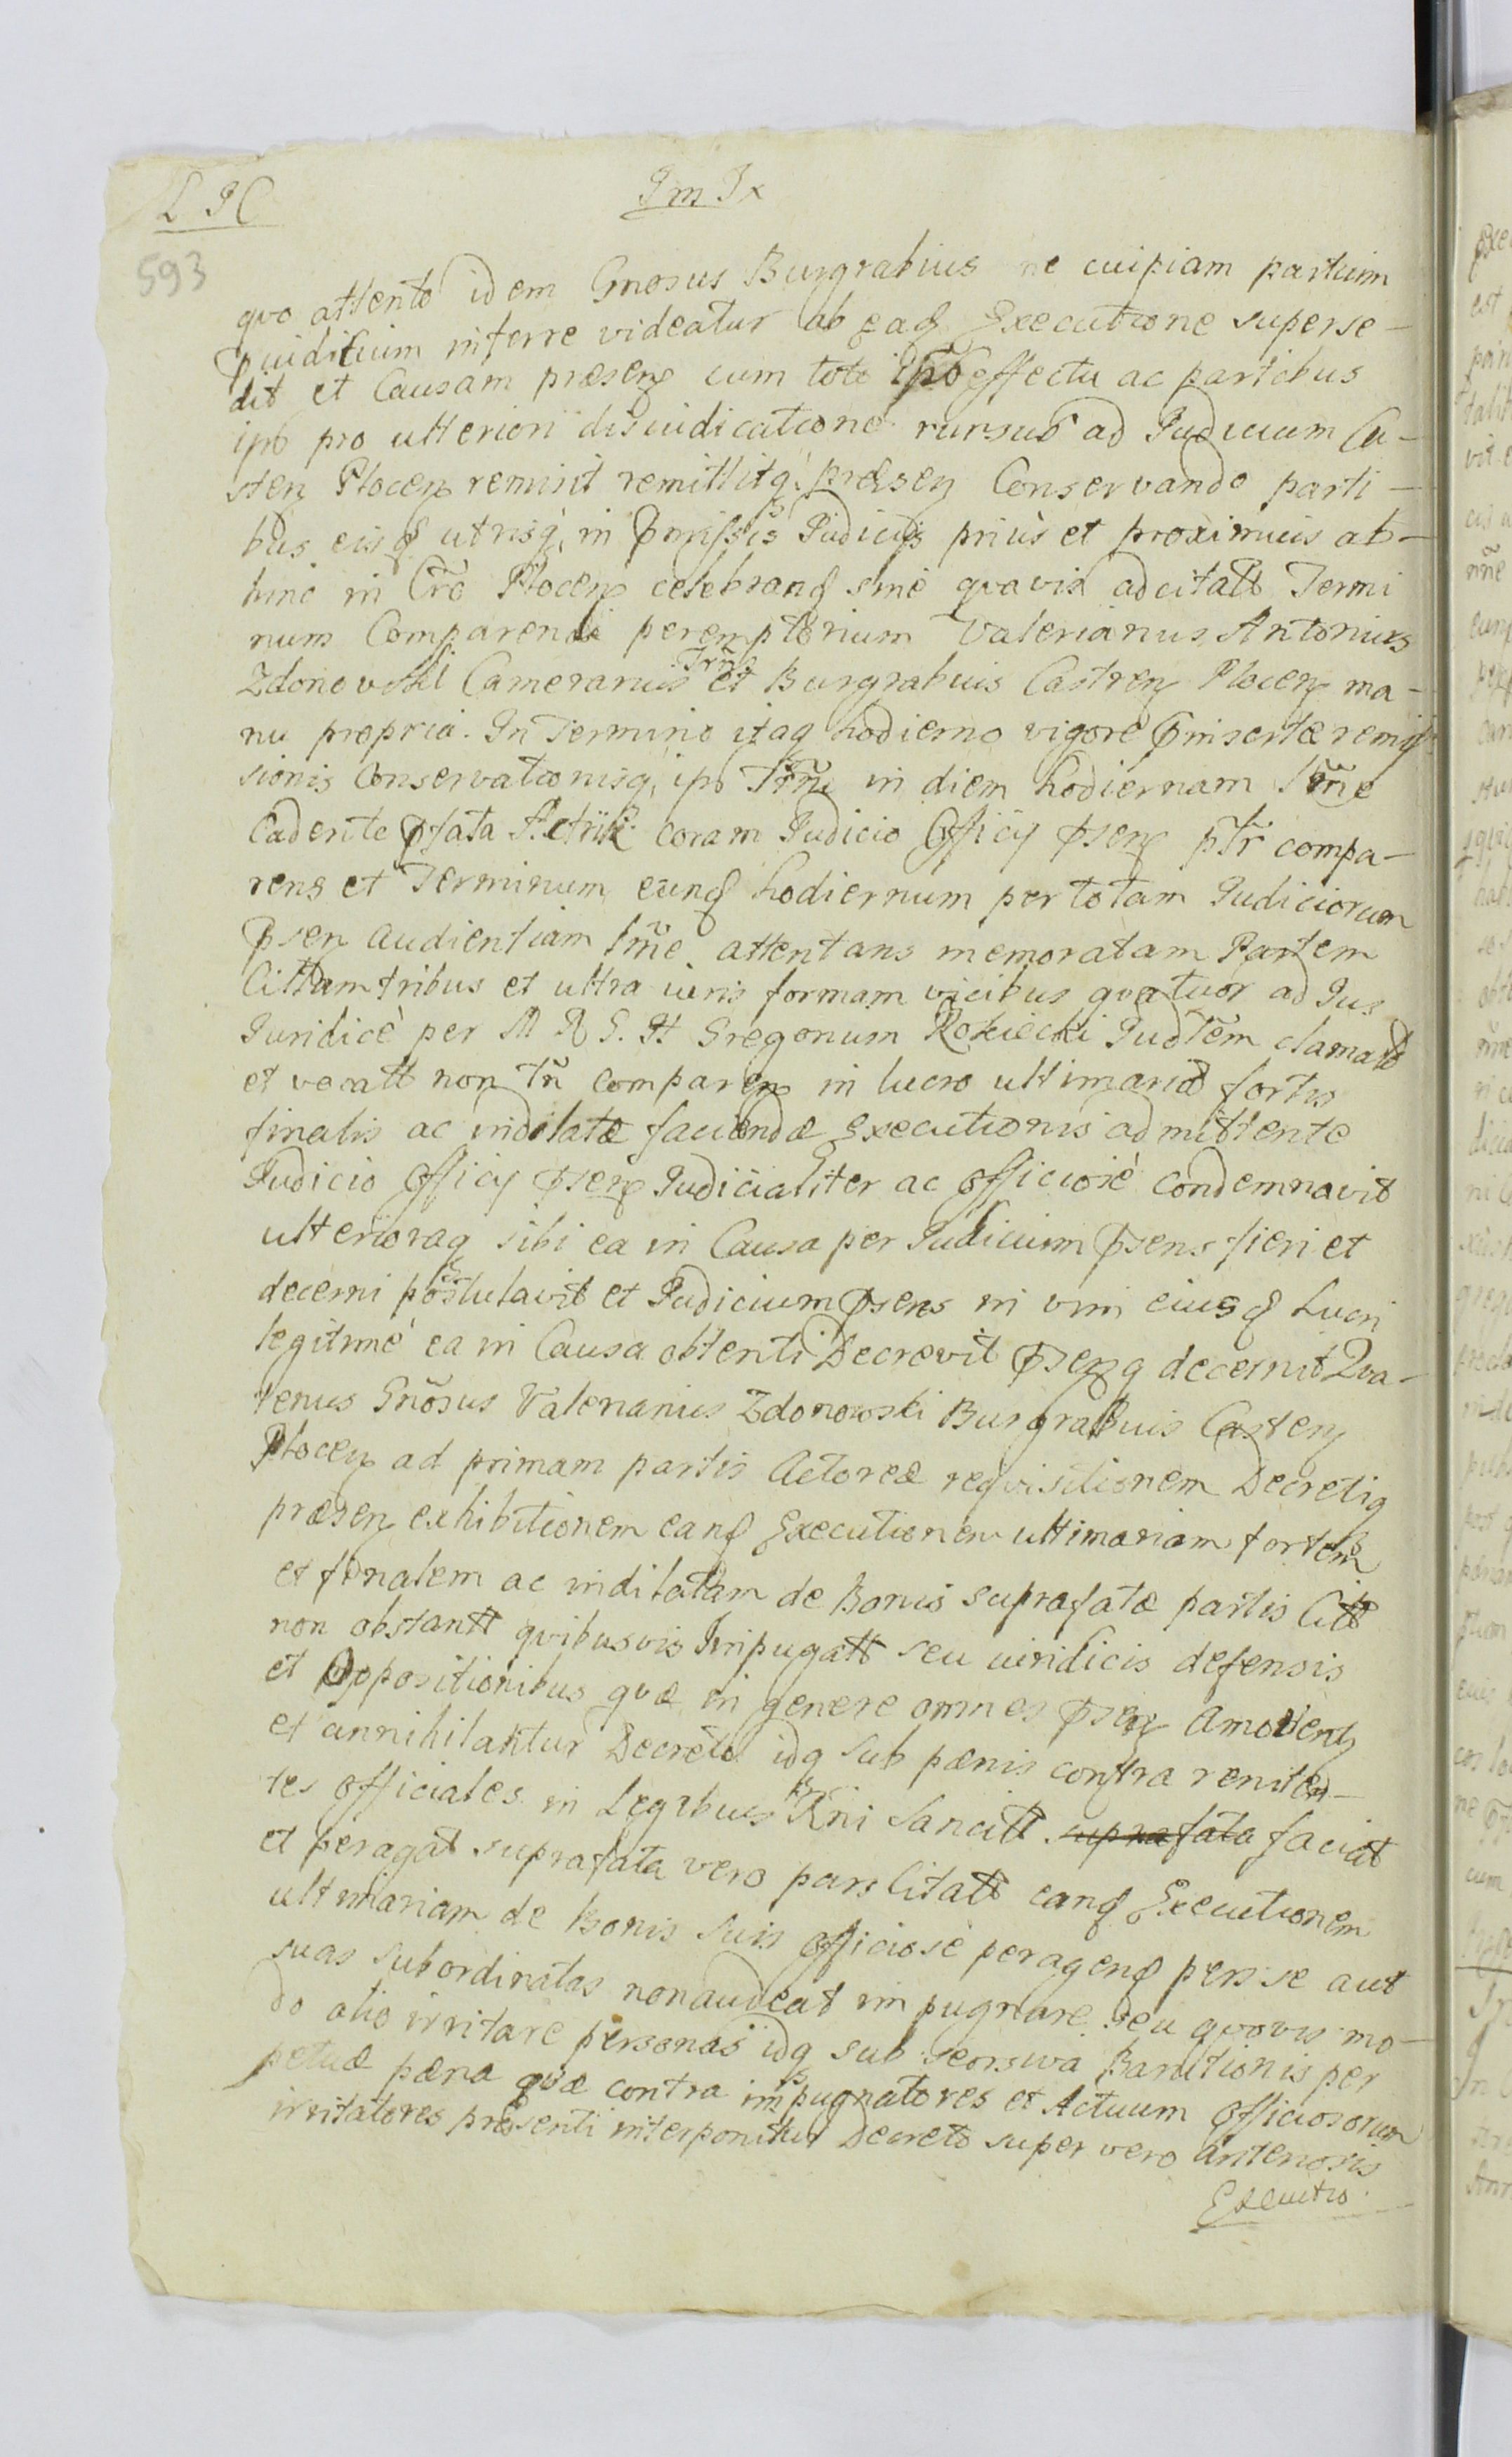 L P C
593
quo attento idem Gnosus Burgrabius ne cuipiam partium
pjuditium inferre videatur ab eadq Executione superse-
dit et Causam præsenq cum toto effectu ac partibus
ipo pro ulteriori disiudicatione rursus ad Judicium Ca-
sten Plocen remisit remittitq præsen Conservando parti-
bus eisd utrisq in pmissis Judicijs prius et proximius ab-
hinc in Cro Plocen celebrand sine quavis adcitatt Termi
num Comparendi peremptorium Valerianus Antonius
Zdonowski Camerarius Trns et Burgrabius Castren Plocen ma-
nu propria. In Termino itaq hodierno vigore pinsertæ remis
sionis Conservationisq ipo Trni in diem hodiernam
Cadente pfata coram Judicio Officij psen ptr compa-
rens et Terminum eund hodiernum per totam Judiciorum
psen audientiam attentans memoratam Partem
Cittam tribus et ultra iuris formam vicibus quatuor ad Jus
Juridicè per M R G. H Gregorium Rokicki Judtem clamatt
et vocatt non tn comparen in lucro ultimariæ fortis
finalis ac indilatæ faciendæ Executionis admittente
Judicio Officij psen Judicialiter ac officiosè condemnavit
ulterioraq sibi ea in Causa per Judicium psens fieri et
decerni postulavit et Judicium psens in vim eiusd Lucri
legitimè ea in Causa obtenti Decrevit psenq decernit Qva-
tenus Gnosus Valerianus Zdonowski Burgrabius Casten
Plocen ad primam partis Actoreæ reqvisitionem Decretiq
præsen exhibitionem eand Executionem ultimariam fortem
et finalem ac indilatam de Bonis suprafatæ partis Citt
non obstantt qvibusvis Impugatt seu iuridicis defensis
et oppositionibus qvæ in genere omnes psen amovent
et annihilantur Decreto idq sub pænis contra reniten-
tes officiales in Legibus Rni Sancitt suprafata faciat
et peragat suprafata vero pars Citatt eand Executionem
ultimariam de Bonis suis officiosè peragend per se aut
suas subordinatas non audeat impugnare seu qvovis mo-
do alio irritare personas idq sub seorsiva Banitionis per
petuæ pæna qvæ contra impugnatores et Actuum officiosorum
irritatores præsenti interponitur Decreto super vero anterioris
Executio